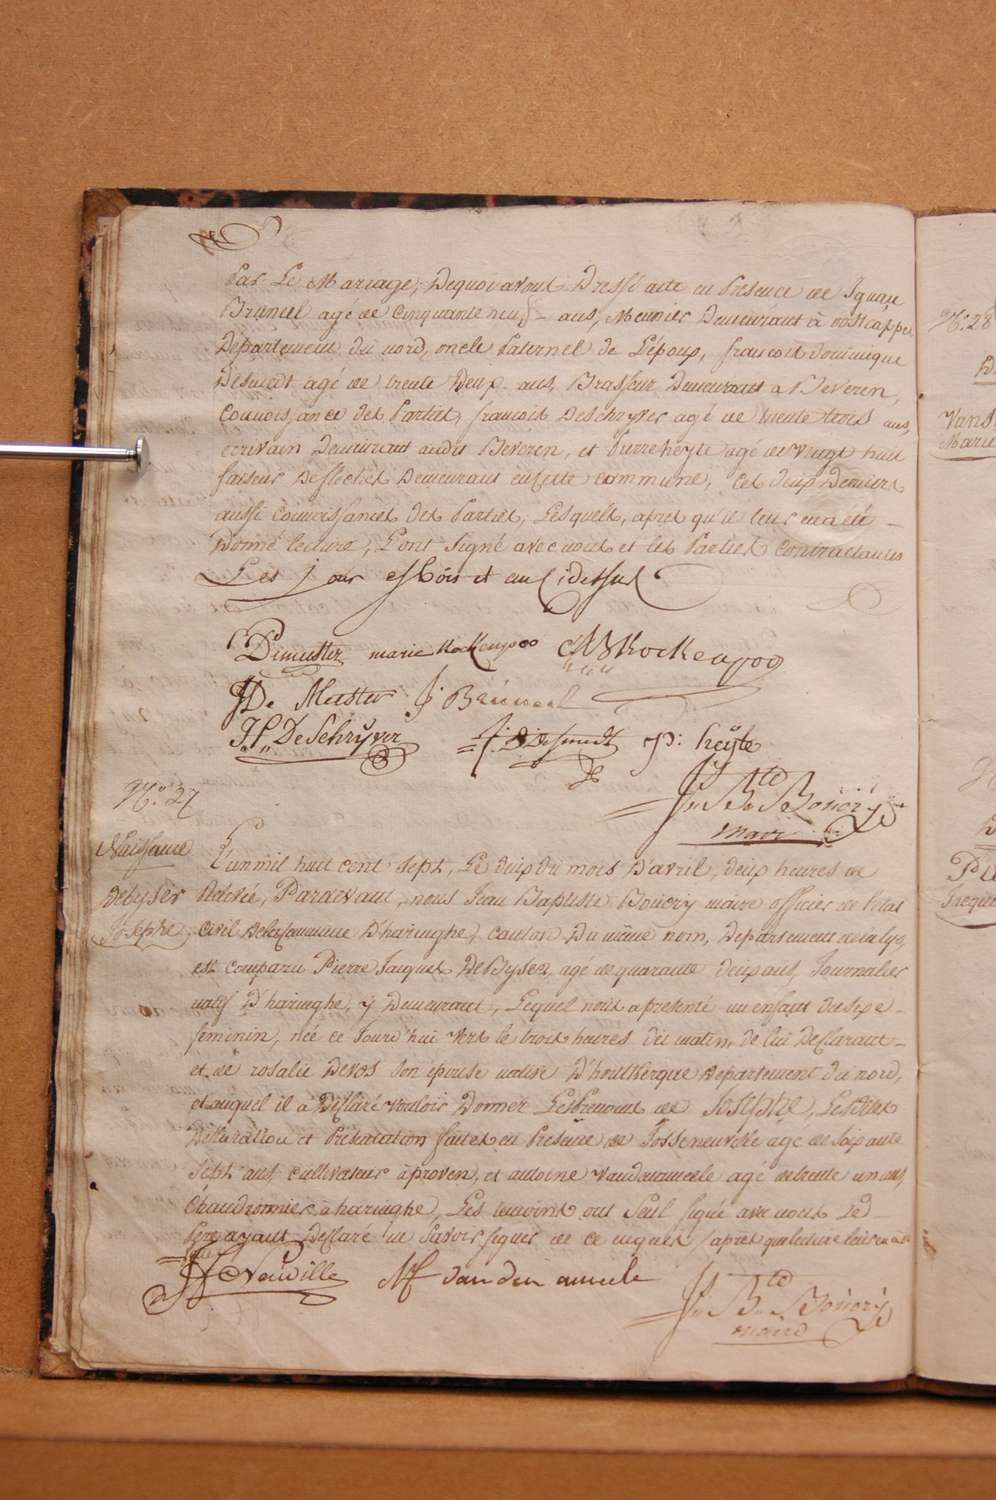 Par Le Mariage, Dequoi avons Dressé acte en Présence de Ignace
Bruneel agé de Cinquante neuf ans, Meunier Demeurant à oostcappel
Département du nord, oncle Paternel de L'épouse, francois Dominique
Desmedt agé de trente Deux ans, Brasseur Demeurant a Beveren,
Connoissance des Parties, francois Deschryver agé de trente trois ans,
ecrivain Demeurant audit Beveren, et Pierre heyte agé de vingt huit
faiseur Deflèches Demeurant en cette commune, Ces deux Derniers
aussi Connoissances des Parties, Lesquels, apres qu'il leur en a été
Donné lecture, L'ont Signé avec nous et les Parties Contractantes
Les Jour Mois et an Cidessus
P Demeester marie Kockenpoo M B Kockenpoo
J De Meester J Bruneel
J F DeSchrÿver F: D Desmedt P: heÿte
Jn Bte Boüorÿ
maire
No. 27
Naissance
Debyser
Josephe
L'an mil huit cent Sept, Le deux Du mois D'avril, deux heures de
Relevée, Pardevant, nous Jean Baptiste Bouory maire officier de l'état
Civil Delacommune D'haringhe, canton Du même nom, Département de la lys,
est comparu Pierre Jacques Debyser, agé de quarante deux ans, Journalier
natif D'haringhe, y Demeurant, Lequel nous a présenté un enfant du sexe
féminin, née ce Jourd'hui vers le trois heures du matin, de lui Déclarant
et de rosalie Devos Son épouse native D'houtkerque Département du nord,
et auquel il a Déclaré vouloir Donner Les Prenoms de Josephe, Les dites
Déclaration et Présentation faites en Présence de Josse neuville agé de Soixante
Sept ans cultivateur à proven, et antoine vandenameele agé de trente un ans
chaudronnier à haringhe, Les temoins ont Seul Signé avec nous Led
Pere ayant Declaré ne Savoir signer de ce enquis, apres que lecture leur en a
été
J F Neuville AF vanden ameele
Jn Bte Boüorÿ
maire
No: 28
Vans
Marie